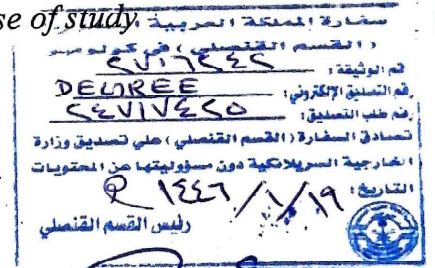 se of study
سفارة المملكة العربية ال
(القسم القنصلي) في كولومبو
رقم الوثيقة: ٢٧١٦٢٤٢
رقم التصديق الإلكتروني: DEGREE
رقم طلب التصديق: ٢٤٧١٧٤٢٥
تصادق السفارة (القسم القنصلي) على تصديق وزارة
الخارجية السريلانكية دون مسؤوليتها عن المحتويات
التاريخ: ١٤٤٦/١/١٩
رئيس القسم القنصلي